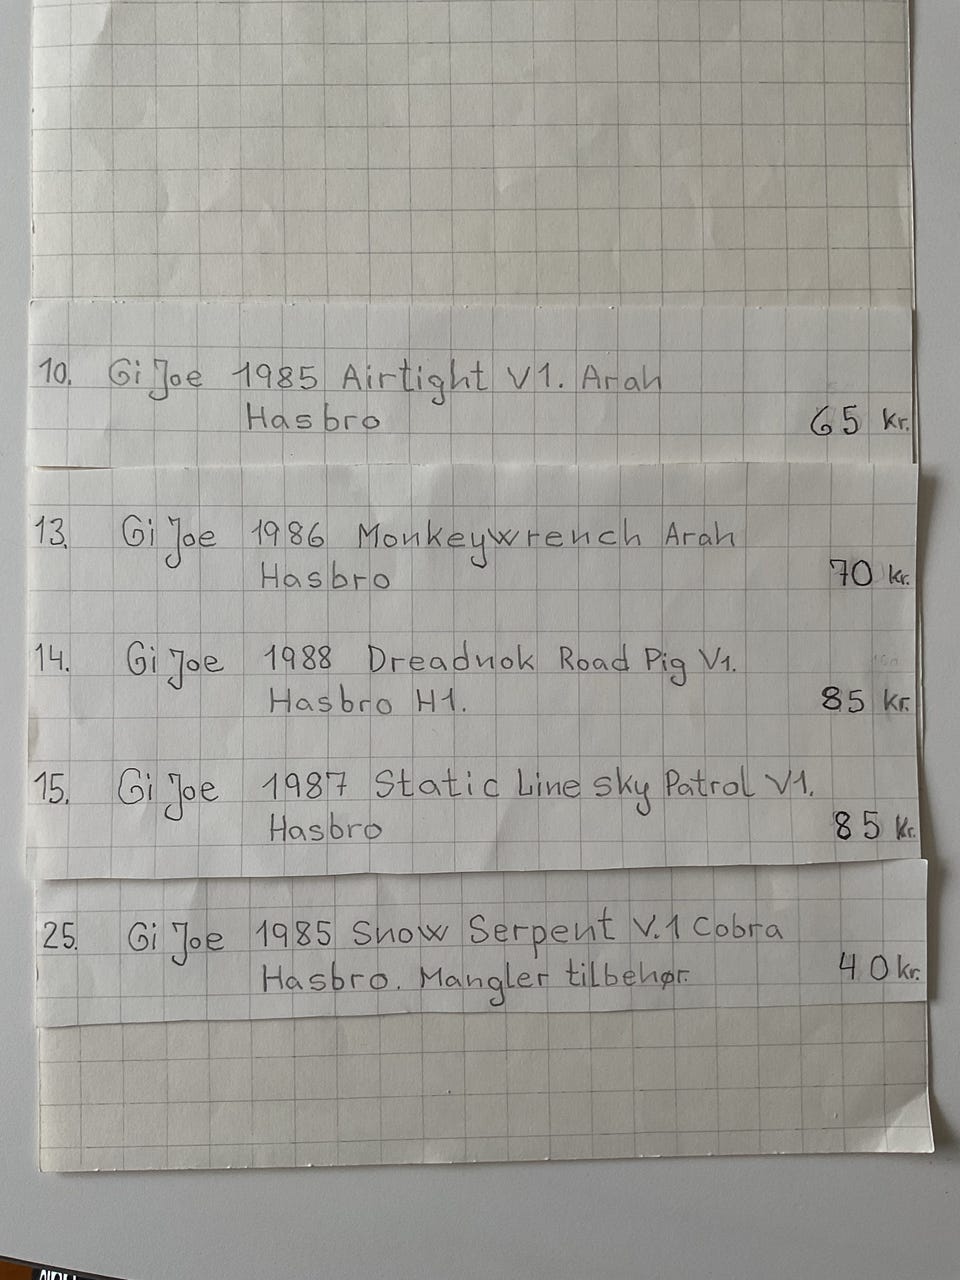 10. Gi Joe 1985 Airtight V1. Arah
Hasbro 65 kr.
13. Gi Joe 1986 Monkeywrench Arah
Hasbro 70 kr.
14. Gi Joe 1988 Dreadnok Road Pig V1.
Hasbro H1. 85 kr.
15. Gi Joe 1987 Static Line sky Patrol V1.
Hasbro 85 kr.
25. Gi Joe 1985 Snow Serpent V.1 Cobra
Hasbro. Mangler tilbehør. 40 kr.